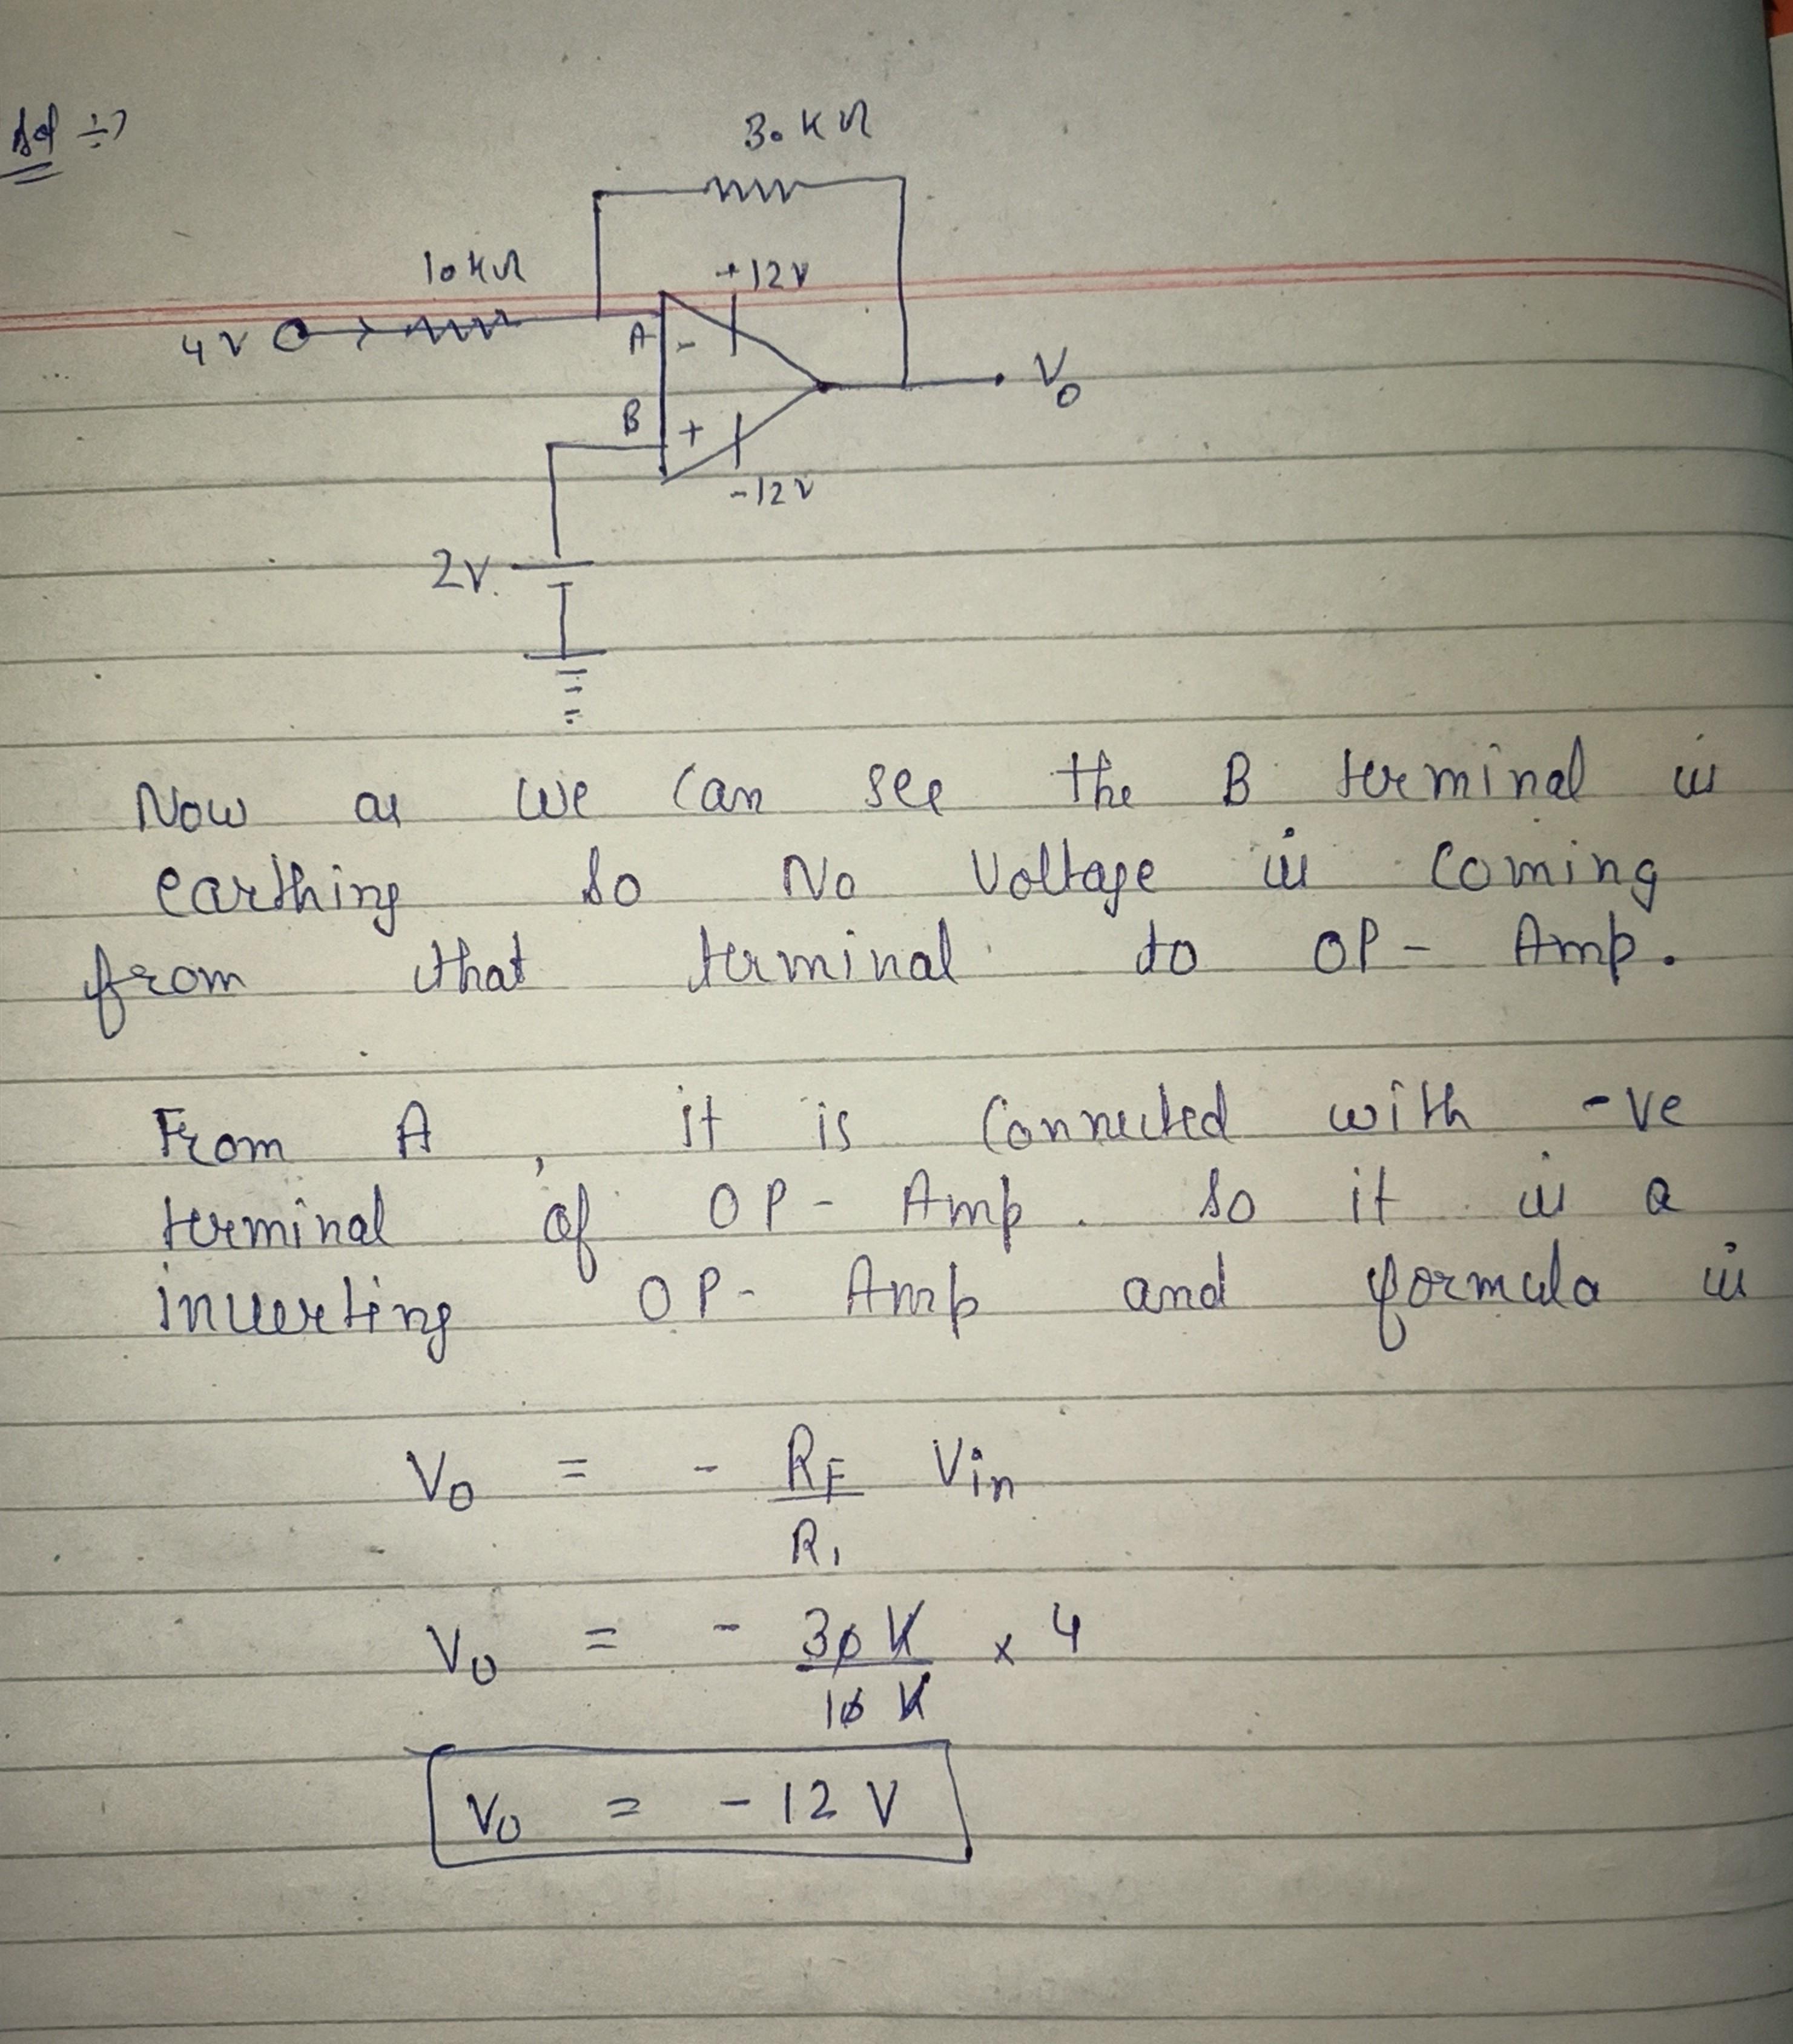 Sol ÷→
30 KΩ
10 KΩ
+12V
4V
A
-
V₀
B
+
-12V
2V.
Now as we can see the B terminal is
earthing so No Voltage is coming
from that terminal to OP - Amp.
From A, it is Connected with -ve
terminal of OP - Amp. So it is a
inverting OP - Amp and formula is
V₀ = - RF/R₁ Vin
V₀ = - 30 K/10 K x 4
V₀ = - 12 V